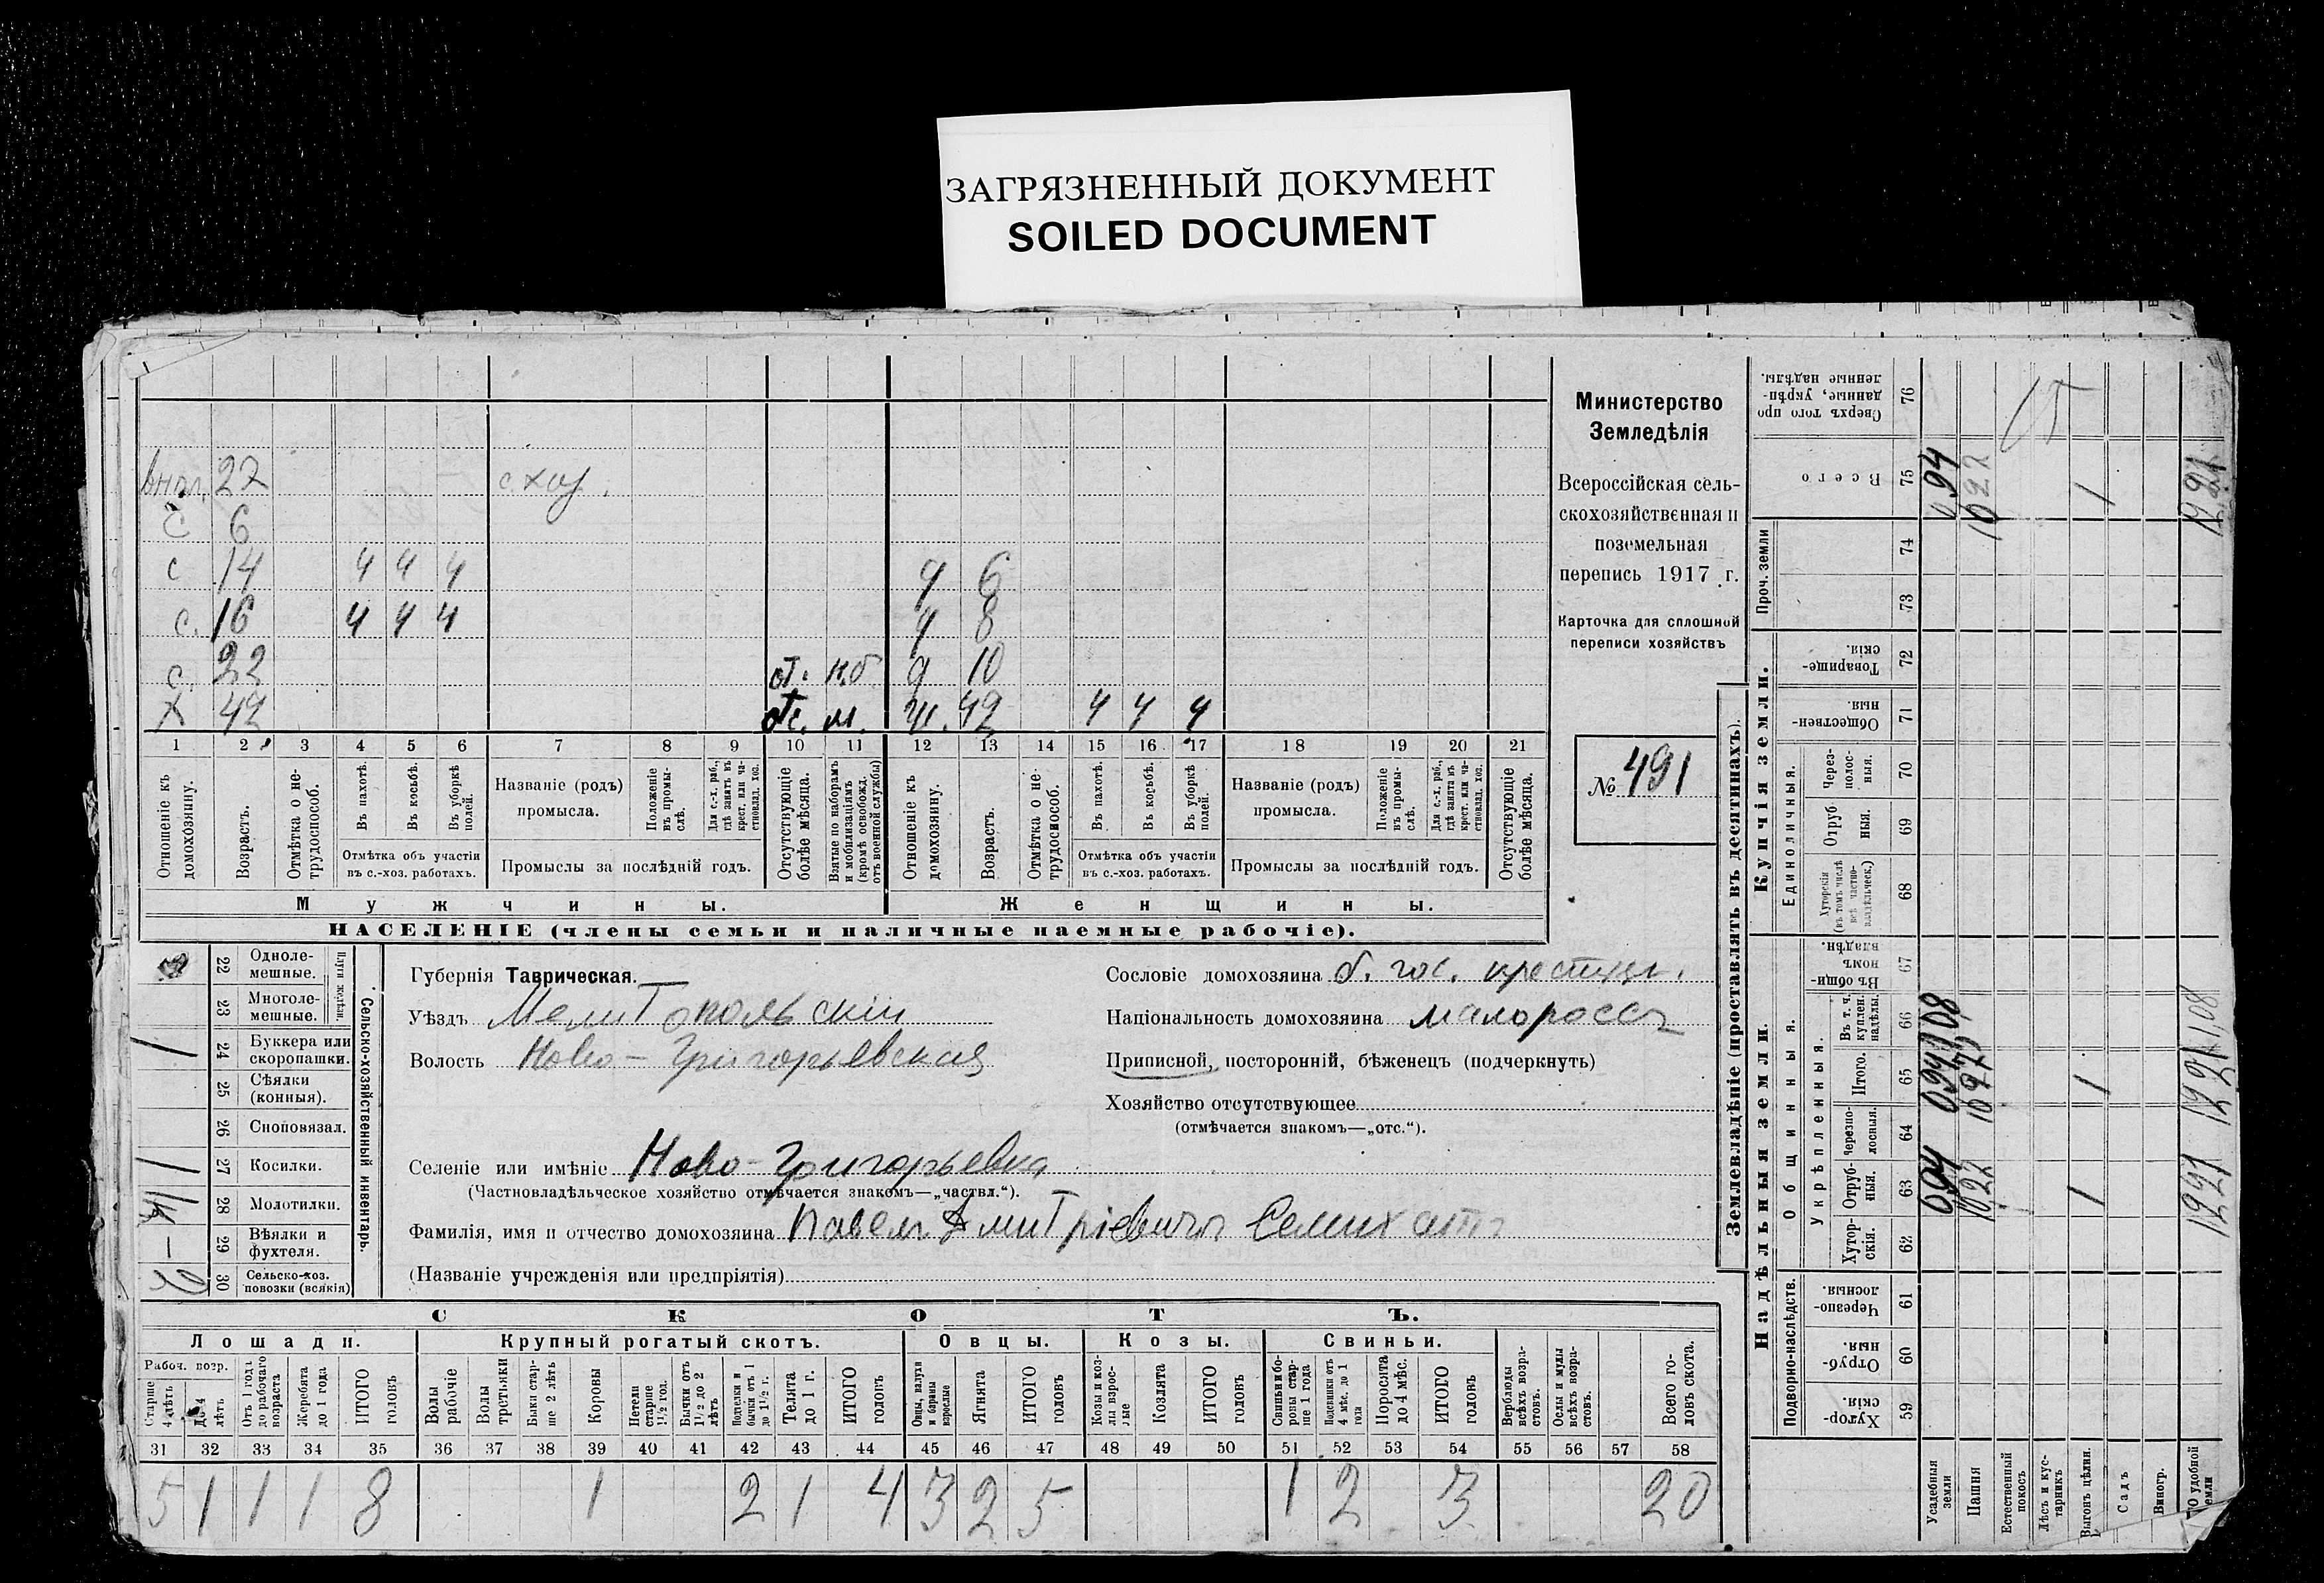 ЗАГРЯЗНЕННЫЙ ДОКУМЕНТ
SOILED DOCUMENT
Министерство
Земледѣлія
Всероссійская сель-
скохозяйственная и
поземельная
перепись 1917 г.
Карточка для сплошной
переписи хозяйствъ
№ 491
27 с.хоз.
с 6
с 14 ч ч ч д 6
с. 16 ч ч ч д 8
с. 22 от. н.б д 10
х 42 отс. м. ж. 42 ч ч ч
1 2 3 4 5 6 7 8 9 10 11 12 13 14 15 16 17 18 19 20 21
Отношеніе къ домохозяину.
Возрастъ.
Отмѣтка о не-трудоспособ.
Въ пахотѣ.
Въ косьбѣ.
Въ уборкѣ полей.
Отмѣтка объ участіи въ с.-хоз. работахъ.
Названіе (родъ) промысла.
Положеніе въ промы-слѣ.
Для с.-х. раб., гдѣ занятъ въ крест. или ча-стновлад. хоз.
Промыслы за послѣдній годъ.
Отсутствующіе болѣе мѣсяца.
Взятые по наборамъ и мобилизаціямъ (кромѣ освобожд. отъ военной службы)
Отношеніе къ домохозяину.
Возрастъ.
Отмѣтка о не-трудоспособ.
Въ пахотѣ.
Въ косьбѣ.
Въ уборкѣ полей.
Отмѣтка объ участіи въ с.-хоз. работахъ.
Названіе (родъ) промысла.
Положеніе въ промы-слѣ.
Для с.-х. раб., гдѣ занята въ крест. или ча-стновлад. хоз.
Промыслы за послѣдній годъ.
Отсутствующіе болѣе мѣсяца.
Мужчины. Женщины.
НАСЕЛЕНІЕ (члены семьи и наличные наемные рабочіе).
Сельско-хозяйственный инвентарь.
Плуги желѣзн.
22 Одноле-мешные.
23 Многоле-мешные.
1 24 Буккера или скоропашки.
25 Сѣялки (конныя).
26 Сноповязал.
1 27 Косилки.
28 Молотилки.
29 Вѣялки и фухтеля.
30 Сельско-хоз. повозки (всякія)
Губернія Таврическая.
Уѣздъ Мелитопольскій
Волость Ново-Григорьевская
Сословіе домохозяина б. гос. крестян.
Національность домохозяина малороссъ
Приписной, посторонній, бѣженецъ (подчеркнуть)
Хозяйство отсутствующее
(отмѣчается знакомъ—„отс.“).
Селеніе или имѣніе Ново-Григорьевка
(Частновладѣльческое хозяйство отмѣчается знакомъ—„частвл.“).
Фамилія, имя и отчество домохозяина Павелъ Дмитріевичъ Семихатъ
(Названіе учрежденія или предпріятія)
СКОТЪ.
Лошади. Крупный рогатый скотъ. Овцы. Козы. Свиньи.
Рабоч. возр.
Старше 4 лѣтъ
До 4 лѣтъ
Отъ 1 года до рабочаго возраста
Жеребята до 1 года
ИТОГО головъ
Волы рабочіе
Волы третьяки
Быки стар-ше 2 лѣтъ
Коровы
Нетели старше 1½ год.
Бычки отъ 1½ до 2 лѣтъ
Подтелки и бычки отъ 1 до 1½ г.
Телята до 1 г.
ИТОГО головъ
Овцы, валухи и бараны взрослые
Ягнята
ИТОГО головъ
Козы и коз-лы взрос-лые
Козлята
ИТОГО головъ
Свиньи и бо-ровы стар-ше 1 года
Подсвинки отъ 4 мѣс. до 1 года
Поросята до 4 мѣс.
ИТОГО головъ
Верблюды всѣхъ возра-стовъ.
Ослы и мулы всѣхъ возра-стовъ.
Всего го-ловъ скота.
31 32 33 34 35 36 37 38 39 40 41 42 43 44 45 46 47 48 49 50 51 52 53 54 55 56 57 58
5 1 1 1 8 1 2 1 4 3 2 5 1 2 3 20
Землевладѣніе (проставлять въ десятинахъ).
Надѣльныя земли. Купчія земли. Проч. земли
Подворно-наслѣдств.
Общинныя.
Укрѣпленныя.
Единоличныя.
Хутор-скія. 59
Отруб-ныя. 60
Черезпо-лосныя. 61
Хутор-скія. 62
Отруб-ныя. 63
Черезпо-лосныя. 64
Итого. 65
Въ т. ч. куплен. надѣлы. 66
Въ общи-номъ владѣн. 67
Хуторскія (въ томъ числѣ всѣ частно-владѣльческ.) 68
Отруб ныя. 69
Через-полос-ныя. 70
Обществен-ныя. 71
Товарище-скія. 72
73
74
Всего 75
Сверхъ того про данные, укрѣп-ленные надѣлы. 76
Усадебныя земли 094 094 094
Пашня 1022
Естественный покосъ
Лѣсъ и кус-тарникъ
Выгонъ цѣлин. 1 1 1
Садъ
Виногр.
О удобной земли 1221 1221 1221